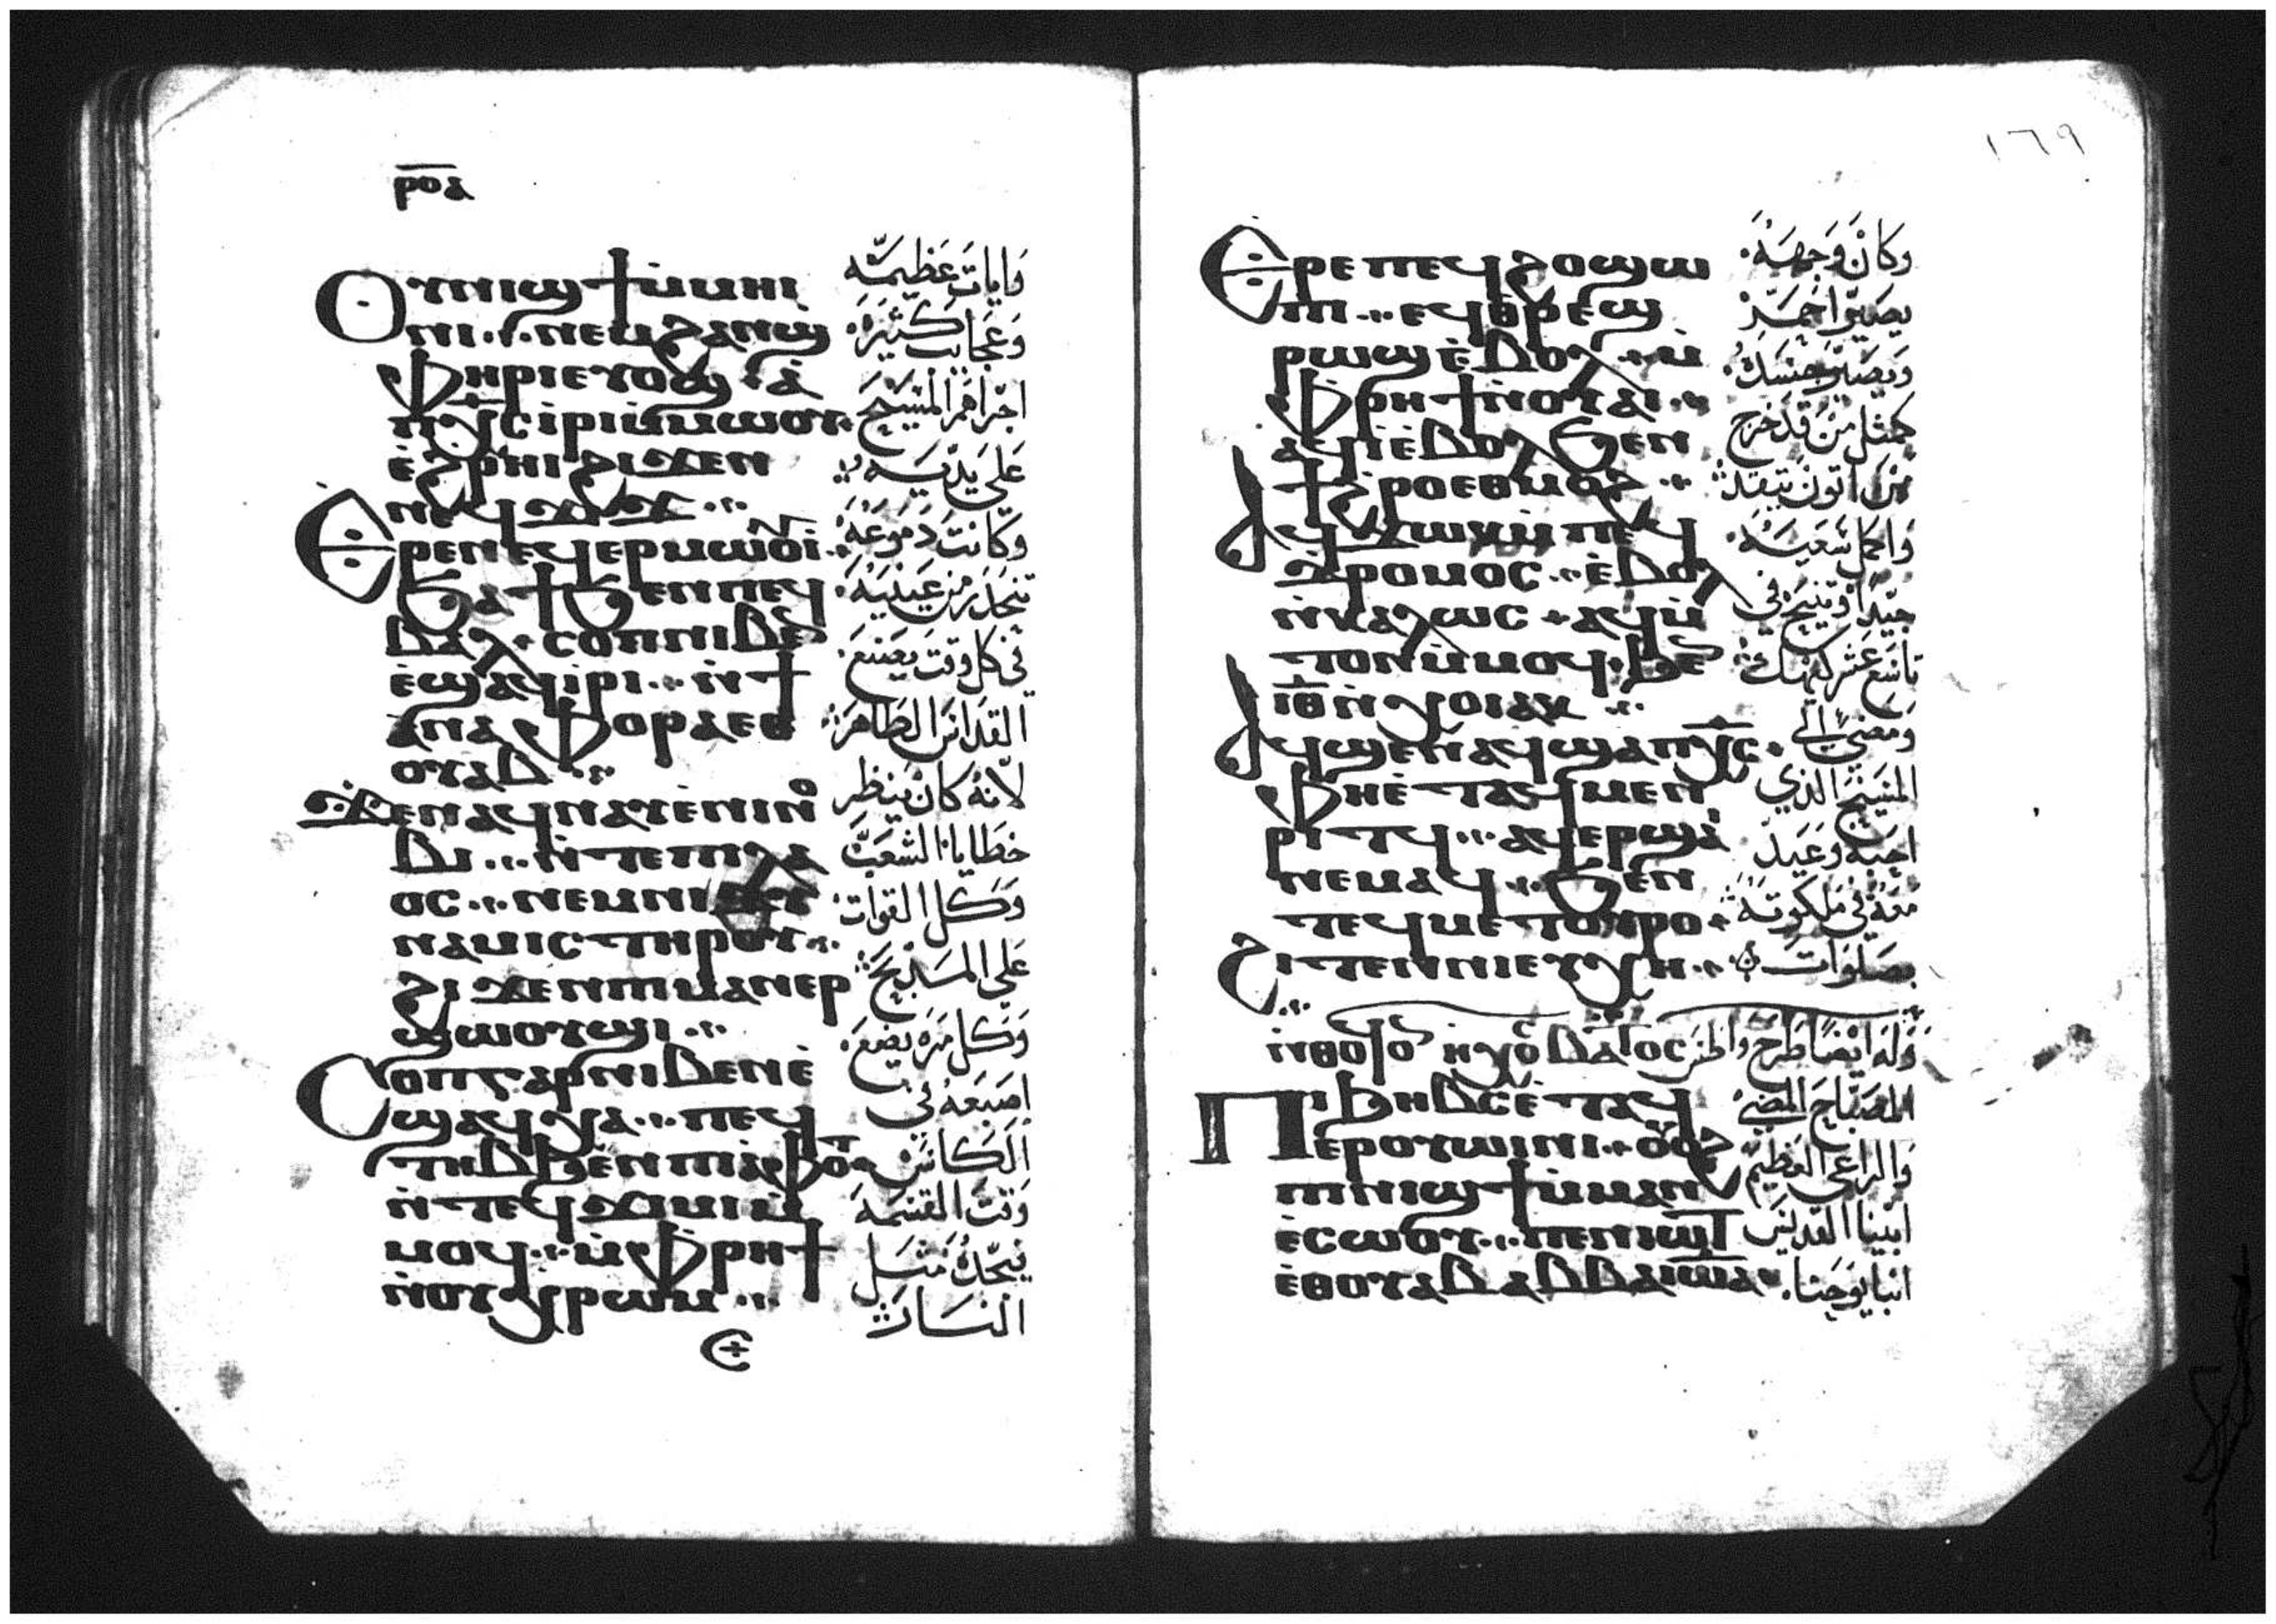 ⲣⲟⲁ
ⲟⲩⲛⲓϣϯ ⲙ̀ⲙⲏⲓ
ⲛⲓ ⲛⲉⲙ ϩⲁⲛϣ
ⲫⲏⲣⲓ ⲉⲩⲟϣ ⲁ̀
ⲡⲭ̅ⲥ̅ ⲓ̀ⲣⲓ ⲙ̀ⲙⲱⲟⲩ
ⲉ̀ϩⲣⲏⲓ ϩⲓϫⲉⲛ
ⲛⲉϥϫⲓϫ
ⲉⲣⲉ ⲛⲉϥⲉⲣⲙⲱⲟⲩⲓ
ϧⲁϯ ϧⲉⲛ ⲛⲉϥ
ⲃⲁⲗ ⲥⲟⲡ ⲛⲓⲃⲉ
ⲉ̀ϣⲁϥⲓ̀ⲣⲓ ⲛ̀ϯ
ⲁ̀ⲛⲁⲫⲟⲣⲁ ⲉⲑ
ⲟⲩⲁⲃ
ϫⲉ ⲛⲁϥⲛⲁⲩ ⲉ̀ⲛⲓⲛⲟ
ⲃⲓ ⲛ̀ⲧⲉ ⲡⲓⲗⲁ
ⲟⲥ ⲛⲉⲙ ⲛⲓⲇⲩ
ⲛⲁⲙⲓⲥ ⲧⲏⲣⲟⲩ
ϩⲓϫⲉⲛ ⲡⲓⲙⲁⲛⲉⲣ
ϣⲱⲟⲩϣⲓ
ⲥⲟⲡ ⲅⲁⲣ ⲛⲓⲃⲉⲛ ⲉ̀
ϣⲁϥⲭⲁ ⲡⲉϥ
ⲧⲏⲃ ϧⲉⲛ ⲡⲓⲁ̀ⲫⲟⲧ
ⲛ̀ⲧⲉϥϫⲓⲙⲓ ⲙ̀
ⲙⲟϥ ⲙ̀ⲫⲣⲏϯ
ⲛ̀ⲟⲩⲭⲣⲱⲙ
وايات عظيمة
وعجايب كثيرة
اجراهم المسيح
على يديه
وكانت دموعه
تنحدر من عينيه
في كل وقت يصنع
القداس الطاهر
لانه كان ينظر
خطايا الشعب
وكل القوات
على المذبح
وكل مرة يضع
اصبعه في
الكاس
وقت القسمة
يجده مثل
النار
١٦٩
ⲉⲣⲉ ⲡⲉϥϩⲟ ϣⲱ
ⲡⲓ ⲉϥⲑⲣⲉϣ
ⲣⲱϣ ⲉ̀ⲃⲟⲗ ⲙ̀
ⲫⲣⲏϯ ⲛ̀ⲟⲩⲁⲓ
ⲁϥⲓ̀ ⲉ̀ⲃⲟⲗ ϧⲉⲛ
ϯϩⲣⲱ ⲉⲑⲙⲟϩ
ⲁϥϫⲱⲕ ⲙ̀ⲡⲉϥ
ⲇⲣⲟⲙⲟⲥ ⲉ̀ⲃⲟⲗ
ⲛ̀ⲕⲁⲗⲱⲥ ⲁϥⲙ̀
ⲧⲟⲛ ⲙ̀ⲙⲟϥ ϧⲉ
ⲓ̅ⲑ̅ ⲛ̀ⲭⲟⲓⲁⲕ
ⲁϥϣⲉⲛⲁϥ ϣⲁ ⲡⲭ̅ⲥ̅
ⲫⲏⲉ̀ⲧⲁϥⲙⲉⲛ
ⲣⲓⲧϥ ⲁϥⲉⲣϣⲁⲓ
ⲛⲉⲙⲁϥ ϧⲉⲛ
ⲧⲉϥⲙⲉⲧⲟⲩⲣⲟ
ϩⲓⲧⲉⲛ ⲛⲓⲉⲩⲭⲏ
ⲡⲓϧⲏⲃⲥ ⲉ̀ⲧⲁϥ
ⲉⲣⲟⲩⲱⲓⲛⲓ ⲟⲩⲟϩ
ⲡⲓⲛⲓϣϯ ⲙ̀ⲙⲁⲛ
ⲉ̀ⲥⲱⲟⲩ ⲡⲉⲛⲓⲱⲧ
ⲉ̀ⲑⲟⲩⲁⲃ ⲁⲃⲃⲁ ⲓⲱⲁ
وكان وجهه
يصير احمر
كمثل من قد خرج
من اتون يتقد
واكمل سعيه
جيدا وتنيح في
تاسع عشر كيهك
ومضى الى
المسيح الذي
احبه وعيد
معه في ملكوته
بصلوات
وله ايضا طرح واطس
المصباح المضي
والراعي العظيم
ابينا القديس
انبا يوحنا